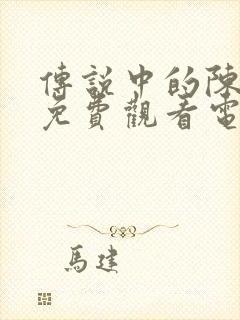 傳説中的陳
免費觀看電
馬建